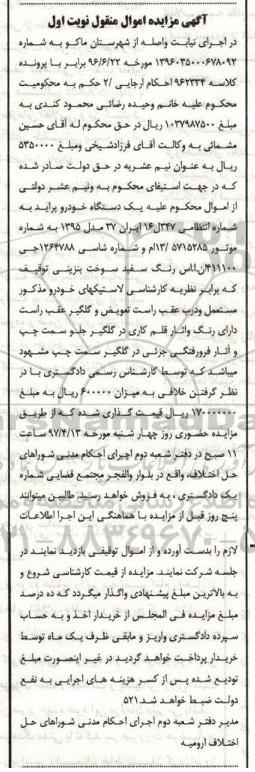 آگهی مزایده اموال منقول نوبت اول
در اجرای نیابت واصله از شهرستان ماکو به شماره
۱۳۹۶۰۳۵۰۰۰۶۷۸۰۹۲ مورخه ۹۶/۶/۲۲ برابر با پرونده
کلاسه ۹۶۲۳۳۴ احکام ارجایی /۲ حکم به محکومیت
محکوم علیه خانم وحیده رضائی محمود کندی به
مبلغ ۱۰۳۷۹۸۷۵۰۰ ریال در حق محکوم له آقای حسین
مشمائی به وکالت آقای فرزادشیخی ومبلغ ۵۳۵۰۰۰۰
ریال به عنوان نیم عشریه در حق دولت صادر شده
که در جهت استیفای محکوم به ونیم عشر دولتی
از اموال محکوم علیه یک دستگاه خودرو پراید به
شماره انتظامی ۳۴۷ل۱۶ ایران ۳۷ مدل ۱۳۹۵ به شماره
موتور ۵۷۱۵۲۸۵ /۱۳ام و شماره شاسی ۱۲۶۴۷۸۸جی
۴۱۱۱۰۰ان‌اس رنگ سفید سوخت بنزینی توقیف
که برابر نظریه کارشناسی لاستیکهای خودرو مذکور
مستعمل ودرب عقب راست تعویض و گلگیر عقب راست
دارای رنگ واثار قلم کاری در گلگیر جلو سمت چپ
و آثار فرورفتگی جزئی در گلگیر سمت چپ مشهود
میباشد که توسط کارشناس رسمی دادگستری با در
نظر گرفتن خلافی به میزان ۶۰۰۰۰۰ ریال به مبلغ
۱۷۰۰۰۰۰۰۰ ریال قیمت گذاری شده که از طریق
مزایده حضوری روز چهار شنبه مورخه ۹۷/۴/۱۳ ساعت
۱۱ صبح در دفتر شعبه دوم اجرای احکام مدنی شوراهای
حل اختلاف، واقع در بلوار والفجر مجتمع قضایی شماره
یک دادگستری ، به فروش خواهد رسید. طالبین میتوانند
پنج روز قبل از مزایده با هماهنگی این اجرا اطلاعات
لازم را بدست آورده و از اموال توقیفی بازدید نمایند در
جلسه شرکت نمایند. مزایده از قیمت کارشناسی شروع و
به بالاترین مبلغ پیشنهادی واگذار میگردد که ده درصد
مبلغ مزایده فی المجلس از خریدار اخذ و به حساب
سپرده دادگستری واریز و مابقی ظرف یک ماه توسط
خریدار پرداخت خواهد گردید در غیر اینصورت مبلغ
تودیع شده پس از کسر هزینه های اجرایی به نفع
دولت ضبط خواهد شد.۵۲۱
مدیر دفتر شعبه دوم اجرای احکام مدنی شوراهای حل
اختلاف ارومیه